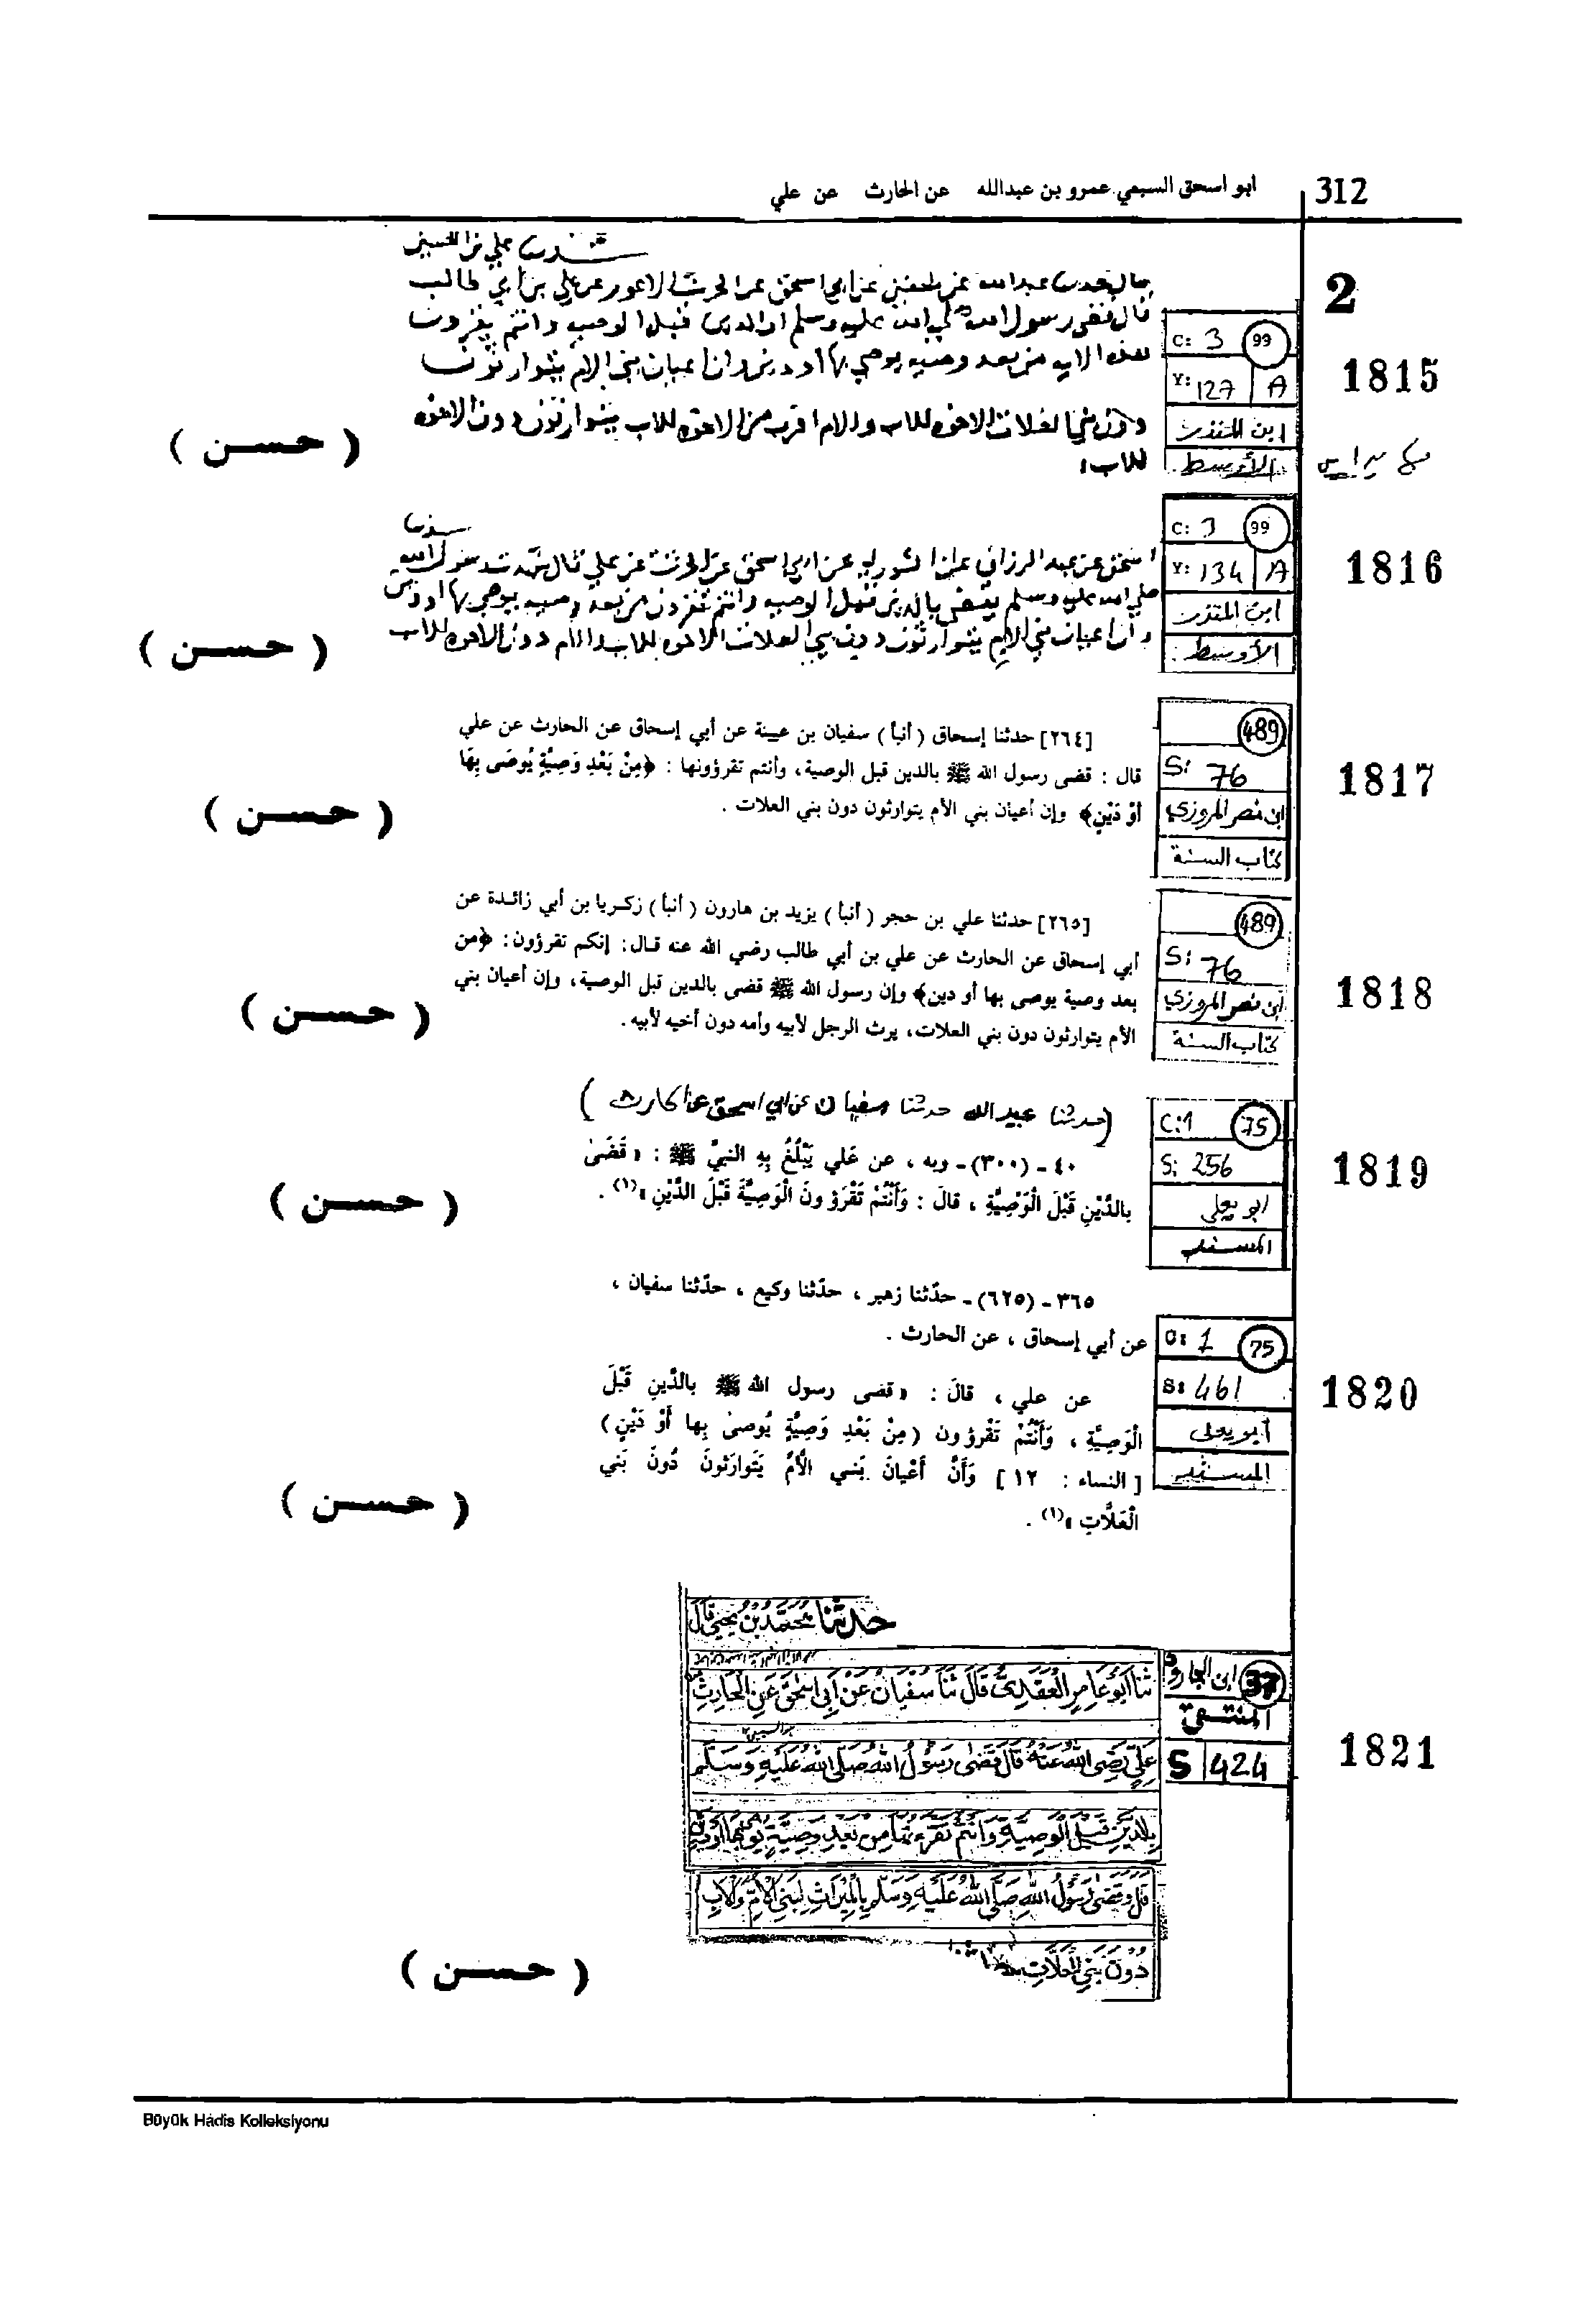 312
ابو اسحق السبيعي عمرو بن عبدالله عن الحارث عن علي
2
حدثنا علي بن الحسين
قال حدثنا عبدالله عن سفين عن ابي اسحق عن الحرث الاعور عن علي بن ابي طالب
قال قضى رسول الله صلى الله عليه وسلم ان الدين قبل الوصيه وانتم تقرون
هذه الايه من بعد وصيه يوصي بها او دين وان اعيان بني الام يتوارثون
دون بني العلات الاخوه للاب والام اقرب من الاخوه للاب يتوارثون دون الاخوه
للاب
C: 3 99
Y: 127 A
ابن المنذر
الأوسط
1815
( حسن )
حدثنا
اسحق عن عبد الرزاق عن الثوري عن ابي اسحق عن الحرث عن علي قال شهدت رسول الله
صلى الله عليه وسلم يقضي بالدين قبل الوصيه وانتم تقرون من بعد وصيه يوصي بها او دين
وان اعيان بني الام يتوارثون دون بني العلات الاخوه للاب والام دون الاخوه للاب
C: 3 99
Y: 134 A
ابن المنذر
الأوسط
1816
( حسن )
[٢٦٤] حدثنا إسحاق ( أنبأ ) سفيان بن عيينة عن أبي إسحاق عن الحارث عن علي
قال : قضى رسول الله ﷺ بالدين قبل الوصية، وأنتم تقرؤونها : ﴿مِنْ بَعْدِ وَصِيَّةٍ يُوصَى بِهَا
أَوْ دَيْنٍ﴾ وإن أعيان بني الأم يتوارثون دون بني العلات .
489
S: 76
ابن نصر المروزي
كتاب السنة
1817
( حسن )
[٢٦٥] حدثنا علي بن حجر ( أنبأ ) يزيد بن هارون ( أنبأ ) زكريا بن أبي زائدة عن
أبي إسحاق عن الحارث عن علي بن أبي طالب رضي الله عنه قال: إنكم تقرؤون: ﴿من
بعد وصية يوصى بها أو دين﴾ وإن رسول الله ﷺ قضى بالدين قبل الوصية، وإن أعيان بني
الأم يتوارثون دون بني العلات، يرث الرجل لأبيه وأمه دون أخيه لأبيه.
489
S: 76
ابن نصر المروزي
كتاب السنة
1818
( حسن )
(حدثنا عبيد الله حدثنا سفيان عن ابي اسحق عن الحارث )
٤٠ - (٣٠٠) - وبه ، عن عَلي يَبْلُغُ بِهِ النبيَّ ﷺ : « قَضَىٰ
بالدَّيْنِ قَبْلَ الْوَصِيَّةِ ، قالَ : وَأَنْتُمْ تَقْرَؤ ونَ الْوَصِيَّةَ قَبْلَ الدَّيْنِ »(١) .
C: 1 75
S: 256
ابو يعلى
المسند
1819
( حسن )
٣٦٥ - (٦٢٥) - حدّثنا زهير ، حدّثنا وكيع ، حدّثنا سفيان ،
عن أبي إسحاق ، عن الحارث .
عن علي ، قالَ : « قضى رسول الله ﷺ بالدَّينِ قَبْلَ
الْوَصِيَّةِ ، وَأَنْتُمْ تَقْرؤ ون (مِنْ بَعْدِ وَصِيَّةٍ يُوصىٰ بِها أَوْ دَيْنٍ)
[ النساء : ١٢ ] وَأَنَّ أَعْيانَ بَني الأُمِّ يَتَوارَثونَ دُونَ بَني
الْعَلَّاتِ »(١) .
C: 1 75
S: 461
أبو يعلى
المسند
1820
( حسن )
حدثنا مُحَمَّدُ بْنُ يَحْيَى قَالَ
ثَنَا أَبُو عَامِرٍ الْعَقَدِيُّ قَالَ ثَنَا سُفْيَانُ عَنْ أَبِي إِسْحٰقَ عَنِ الْحَارِثِ
عَلِيٍّ رَضِيَ اللهُ عَنْهُ قَالَ قَضَى رَسُولُ اللهِ صَلَّى اللهُ عَلَيْهِ وَسَلَّمَ
بِالدَّيْنِ قَبْلَ الْوَصِيَّةِ وَأَنْتُمْ تَقْرَءُونَهَا مِنْ بَعْدِ وَصِيَّةٍ يُوصَى بِهَا أَوْ دَيْنٍ
قَالَ وَقَضَى رَسُولُ اللهِ صَلَّى اللهُ عَلَيْهِ وَسَلَّمَ بِالْمِيرَاثِ لِبَنِي الْأُمِّ وَالْأَبِ
دُونَ بَنِي الْعَلَّاتِ
37 ابن الجارود
المنتقى
S 424
1821
( حسن )
Büyük Hadis Kolleksiyonu